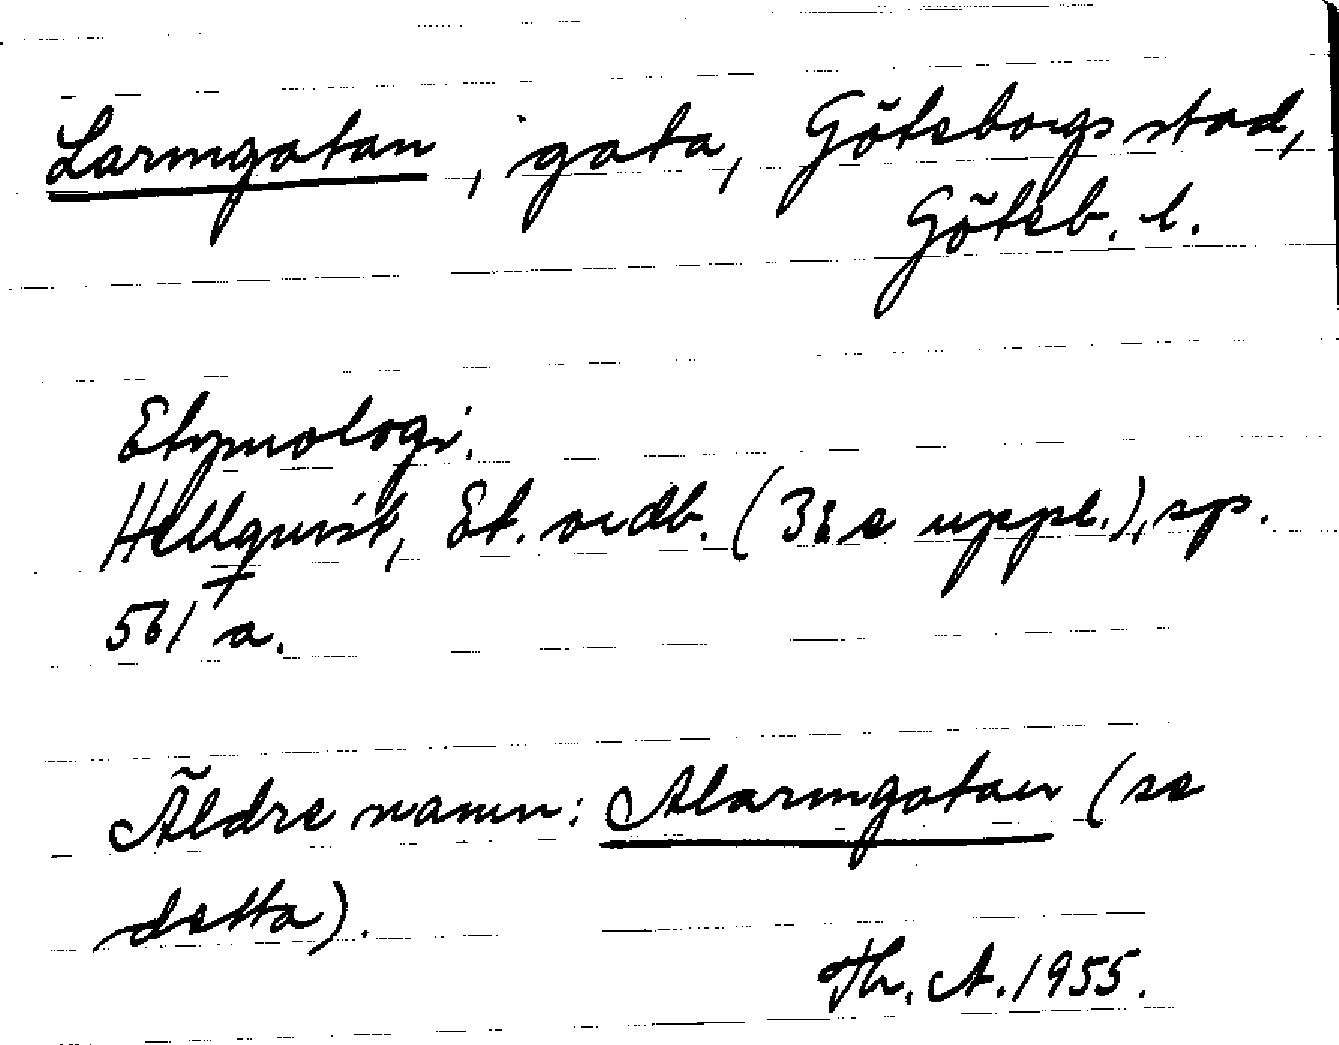 Larmgatan, gata, Göteborgs stad,
Göteb. l.
Etymologi.
Hellquist, Et. ordb. (3:e uppl.), sp.
561 a.
Äldre namn: Alarmgatan (se
detta).
Th. A. 1955.